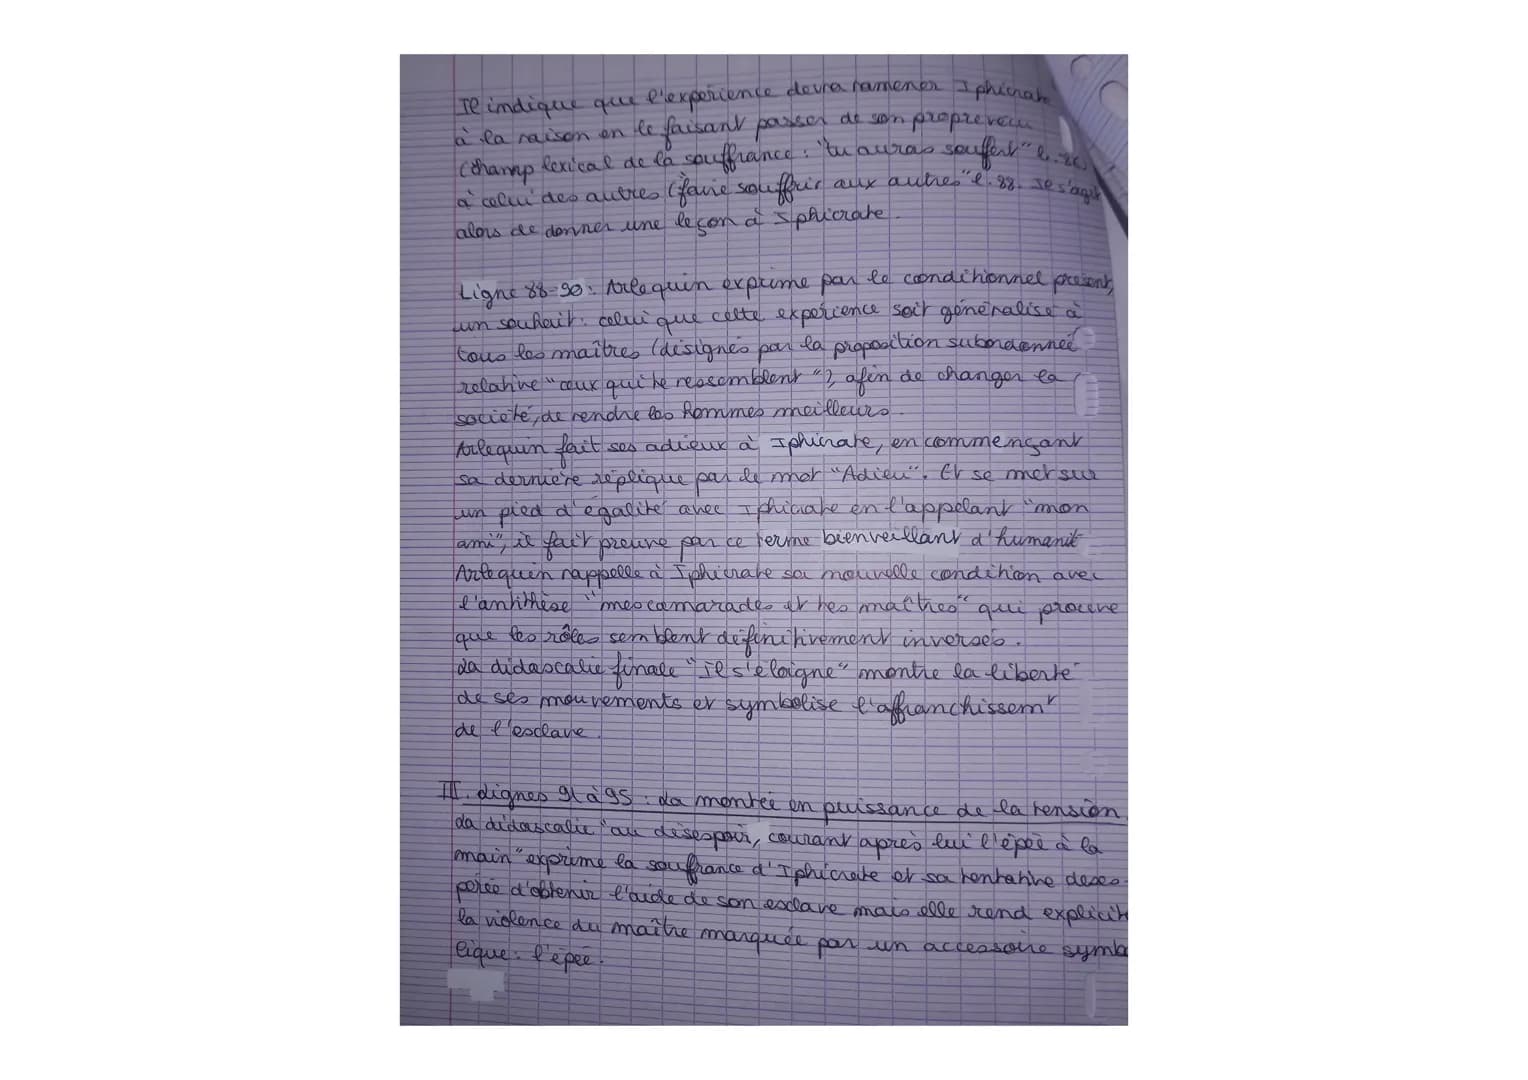 Il indique que l'expérience devra ramener Iphicrate
à la raison en le faisant passer de son propre vécu
(champ lexical de la souffrance : "tu auras souffert" l.
à celui des autres (faire souffrir aux autres" l. 88. Il s'agit
alors de donner une leçon à Iphicrate.
Ligne 88-90 : Arlequin exprime par le conditionnel présent,
un souhait : celui que cette expérience soit généralisé à
tous les maîtres (désignés par la proposition subordonnée
relative "ceux qui te ressemblent"), afin de changer la
société, de rendre les hommes meilleurs.
Arlequin fait ses adieux à Iphicrate, en commençant
sa dernière réplique par le mot "Adieu". Et se met sur
un pied d'égalité avec Iphicrate en l'appelant "mon
ami", il fait preuve par ce terme bienveillant d'humanit
Arlequin rappelle à Iphicrate sa nouvelle condition avec
l'antithèse "mes camarades et tes maîtres" qui prouve
que les rôles semblent définitivement inversés.
La didascalie finale "Il s'éloigne" montre la liberté
de ses mouvements et symbolise l'affranchissemt
de l'esclave.
II. Lignes 91 à 95 : La montée en puissance de la tension
La didascalie "au désespoir, courant après lui l'épée à la
main" exprime la souffrance d'Iphicrate et sa tentative déses-
pérée d'obtenir l'aide de son esclave mais elle rend explicite
la violence du maître marquée par un accessoire symbo
lique : l'épée.